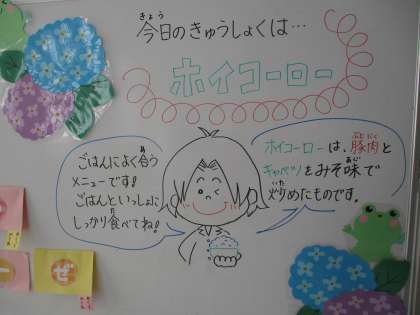 今日のきゅうしょくは…
ホイコーロー
ごはんによく合う
メニューです!
ごはんといっしょに
しっかり食べてね!
ホイコーローは、豚肉と
キャベツをみそ味で
炒めたものです。
ぜ